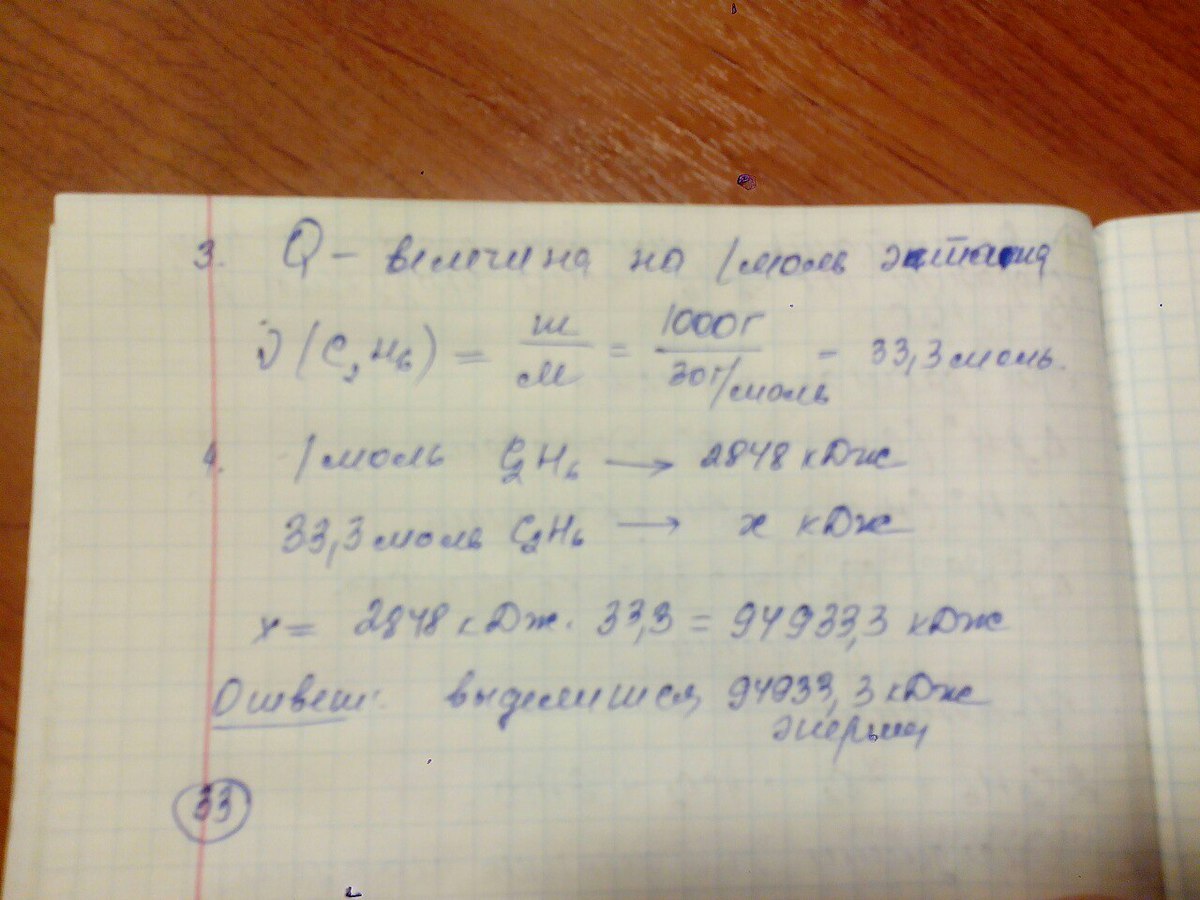 3. Q – величина на 1 моль этана
ν (C₂H₆) = m/M = 1000г/30г/моль = 33,3 моль.
4. 1 моль C₂H₆ → 2848 кДж
33,3 моль C₂H₆ → x кДж
x = 2848 кДж · 33,3 = 94933,3 кДж
Ответ: выделится 94933,3 кДж
энергии
33